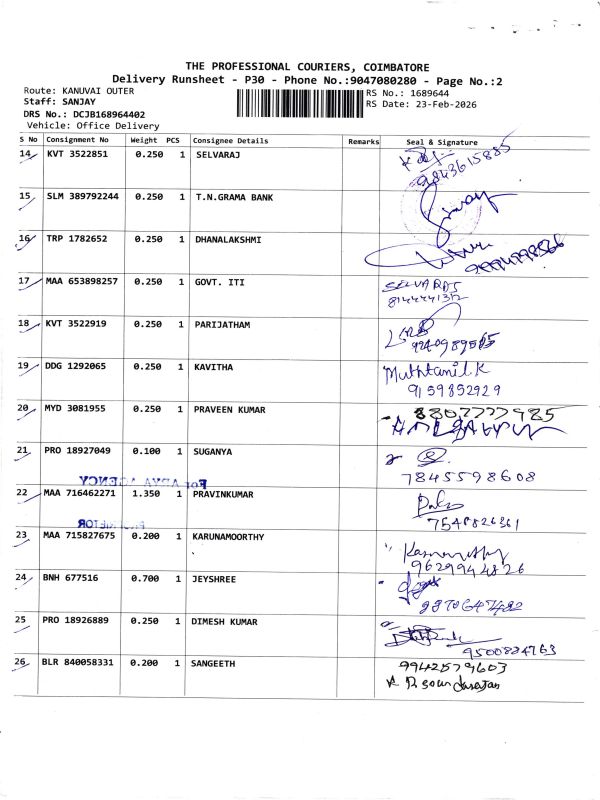 THE PROFESSIONAL COURIERS, COIMBATORE
Delivery Runsheet - P30 - Phone No.:9047080280 - Page No.:2
Route: KANUVAI OUTER
RS No.: 1689644
Staff: SANJAY
RS Date: 23-Feb-2026
DRS No.: DCJB168964402
Vehicle: Office Delivery
S No Consignment No Weight PCS Consignee Details Remarks Seal & Signature
14 KVT 3522851 0.250 1 SELVARAJ 9843615885
15 SLM 389792244 0.250 1 T.N.GRAMA BANK
16 TRP 1782652 0.250 1 DHANALAKSHMI
17 MAA 653898257 0.250 1 GOVT. ITI
18 KVT 3522919 0.250 1 PARIJATHAM
19 DDG 1292065 0.250 1 KAVITHA Muthtamil.K
9159852929
20 MYD 3081955 0.250 1 PRAVEEN KUMAR 8807777985
21 PRO 18927049 0.100 1 SUGANYA
7845598608
For ADYA AGENCY
22 MAA 716462271 1.350 1 PRAVINKUMAR
7548826361
PROPRIETOR
23 MAA 715827675 0.200 1 KARUNAMOORTHY
9629944826
24 BNH 677516 0.700 1 JEYSHREE
25 PRO 18926889 0.250 1 DIMESH KUMAR
9500884763
26 BLR 840058331 0.200 1 SANGEETH 9942579603